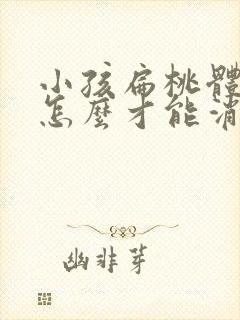 小孩扁桃體
怎麼才能消
幽非芽